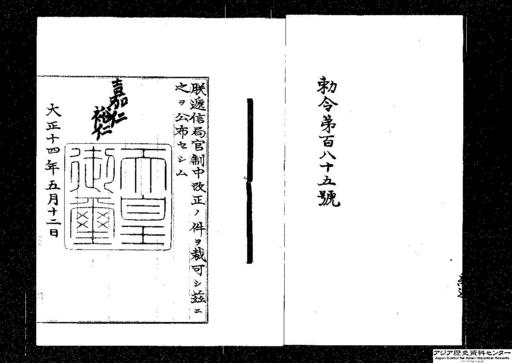 勅令第百八十五號
朕遞信局官制中改正ノ件ヲ裁可シ茲ニ
之ヲ公布セシム
嘉仁
裕仁
大正十四年五月十二日
天皇
御璽
アジア歴史資料センター
Japan Center for Asian Historical Records